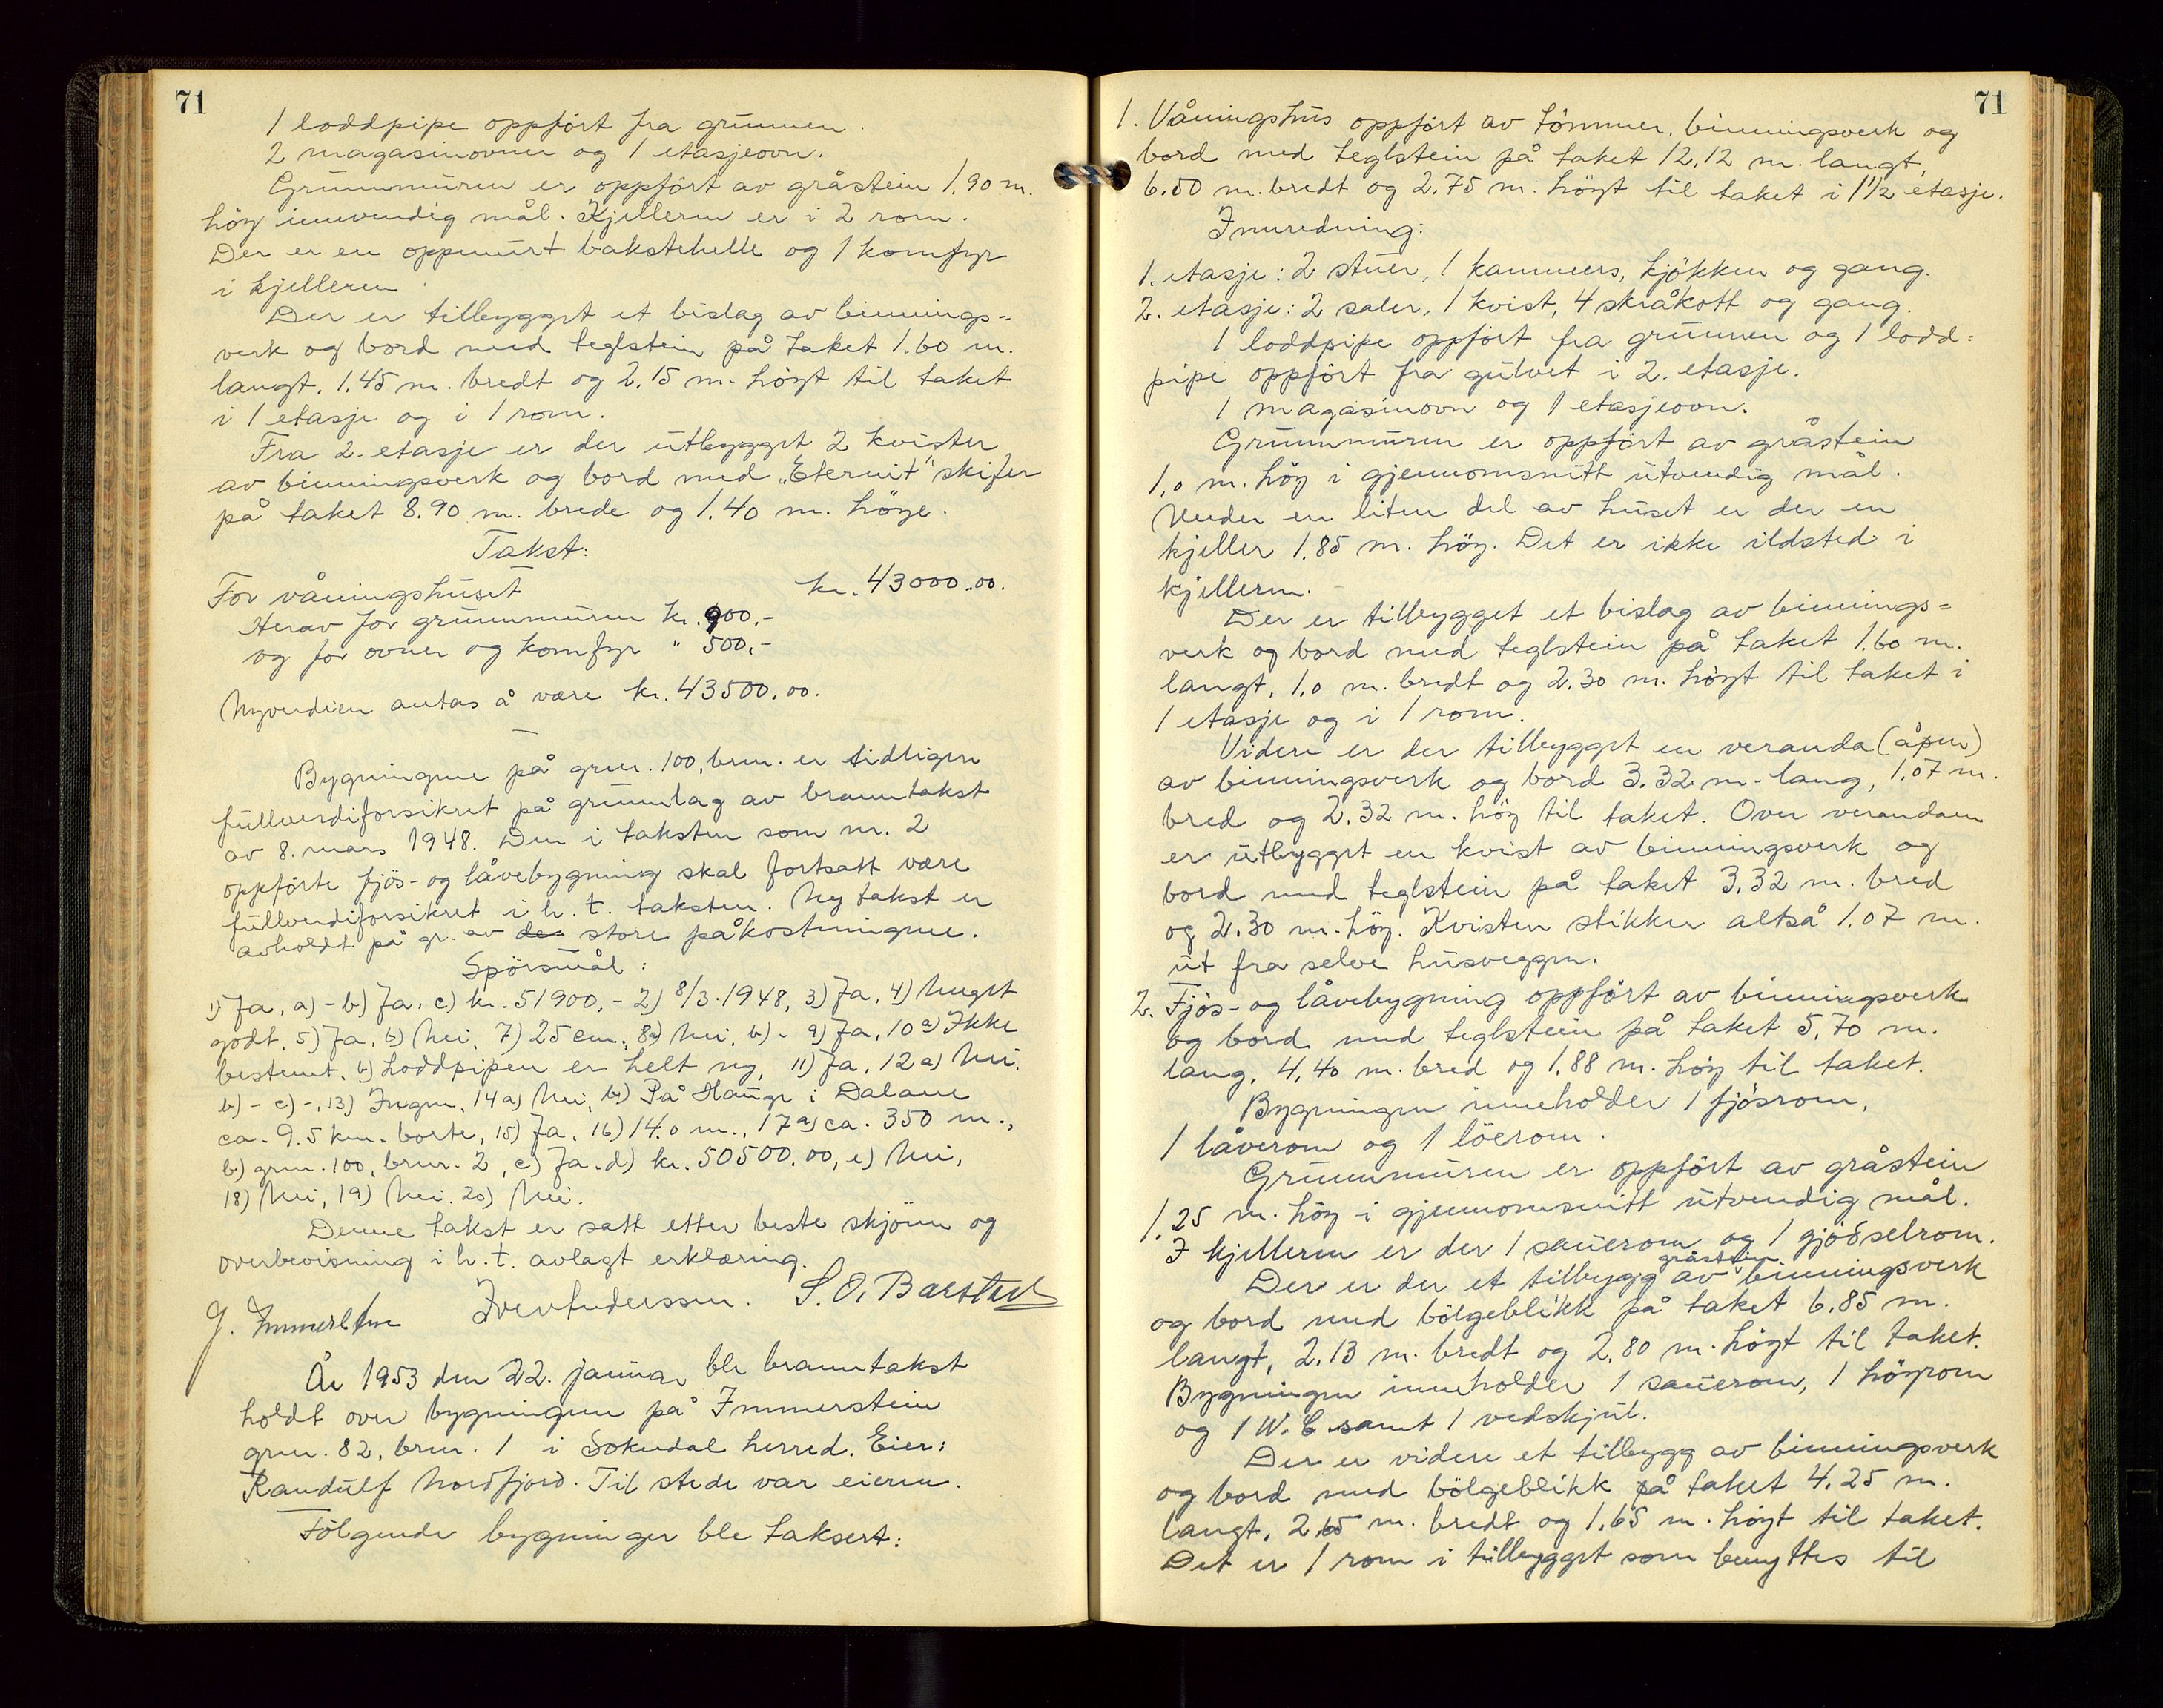 71
1 loddpipe oppført fra grunnen.
2 magasinovner og 1 etasjeovn.
Grunnmuren er oppført av gråstein 1.90 m.
høy innvendig mål. Kjelleren er i 2 rom.
Der er en oppmurt bakstehelle og 1 komfyr
i kjelleren.
Der er tilbygget et bislag av binnings-
verk og bord med teglstein på taket 1.60 m.
langt, 1.45 m. bredt og 2.15 m. høyt til taket
i 1 etasje og i 1 rom.
Fra 2. etasje er der utbygget 2 kvister
av binningsverk og bord med „Eternit" skifer
på taket 8.90 m. brede og 1.40 m. høye.
Takst:
For våningshuset kr. 43000.00.
Herav for grunnmuren kr. 900,-
og for ovner og komfyr " 500,-
Nyverdien antas å være kr. 43500.00.
Bygningene på grnr. 100, brnr. er tidligere
fullverdiforsikret på grunnlag av branntakst
av 8. mars 1948. Den i taksten som nr. 2
oppførte fjøs- og låvebygning skal fortsatt være
fullverdiforsikret i h. t. taksten. Ny takst er
avholdt på gr. av de store påkostningene.
Spørsmål:
1) Ja, a) - b) Ja, c) kr. 51900,- 2) 8/3-1948, 3) Ja, 4) Meget
godt, 5) Ja, 6) Nei, 7) 25 cm., 8a) Nei, b) - 9) Ja, 10 a) Ikke
bestemt, b) Loddpipen er helt ny, 11) Ja, 12 a) Nei,
b) - c) -, 13) Ingen, 14 a) Nei, b) På Hauge i Dalane
ca. 9.5 km. borte, 15) Ja, 16) 14.0 m., 17 a) ca. 350 m.,
b) grnr. 100, brnr. 2, c) Ja. d) kr. 50500.00, e) Nei,
18) Nei, 19) Nei. 20) Nei.
Denne takst er satt etter beste skjønn og
overbevisning i h. t. avlagt erklæring.
J. Immerstein Iver Anderssen. S. O. Barstad
År 1953 den 22. januar ble branntakst
holdt over bygningene på Immerstein
grnr. 82, brnr. 1 i Sokndal herred. Eier:
Randulf Nordfjord. Til stede var eieren.
Følgende bygninger ble taksert:
71
1. Våningshus oppført av tømmer, binningsverk og
bord med teglstein på taket 12.12 m. langt,
6.50 m. bredt og 2.75 m. høyt til taket i 1 1/2 etasje.
Innredning:
1. etasje: 2 stuer, 1 kammers, kjøkken og gang.
2. etasje: 2 saler, 1 kvist, 4 skråkott og gang.
1 loddpipe oppført fra grunnen og 1 lodd-
pipe oppført fra gulvet i 2. etasje.
1 magasinovn og 1 etasjeovn.
Grunnmuren er oppført av gråstein
1.0 m. høy i gjennomsnitt utvendig mål.
Under en liten del av huset er der en
kjeller 1.85 m. høy. Det er ikke ildsted i
kjelleren.
Der er tilbygget et bislag av binnings-
verk og bord med teglstein på taket 1.60 m.
langt, 1.0 m. bredt og 2.30 m. høyt til taket i
1 etasje og i 1 rom.
Videre er der tilbygget en veranda (åpen)
av binningsverk og bord 3.32 m. lang, 1.07 m.
bred og 2.32 m. høy til taket. Over verandaen
er utbygget en kvist av binningsverk og
bord med teglstein på taket 3.32 m. bred
og 2.30 m. høy. Kvisten stikker altså 1.07 m.
ut fra selve husveggen.
2. Fjøs- og låvebygning oppført av binningsverk
og bord med teglstein på taket 5.70 m.
lang, 4.40 m. bred og 1.88 m. høy til taket.
Bygningen inneholder 1 fjøsrom,
1 låverom og 1 løerom.
Grunnmuren er oppført av gråstein
1.25 m. høy i gjennomsnitt utvendig mål.
I kjelleren er der 1 sauerom og 1 gjødselrom.
gråstein
Der er der et tilbygg av binningsverk
og bord med bølgeblikk på taket 6.85 m.
langt, 2.13 m. bredt og 2.80 m. høgt til taket.
Bygningen inneholder 1 sauerom, 1 høyrom
og 1 W.C samt 1 vedskjul.
Der er videre et tilbygg av binningsverk
og bord med bølgeblikk på taket 4.25 m.
langt, 2.65 m. bredt og 1.65 m. høyt til taket.
Det er 1 rom i tilbygget som benyttes til